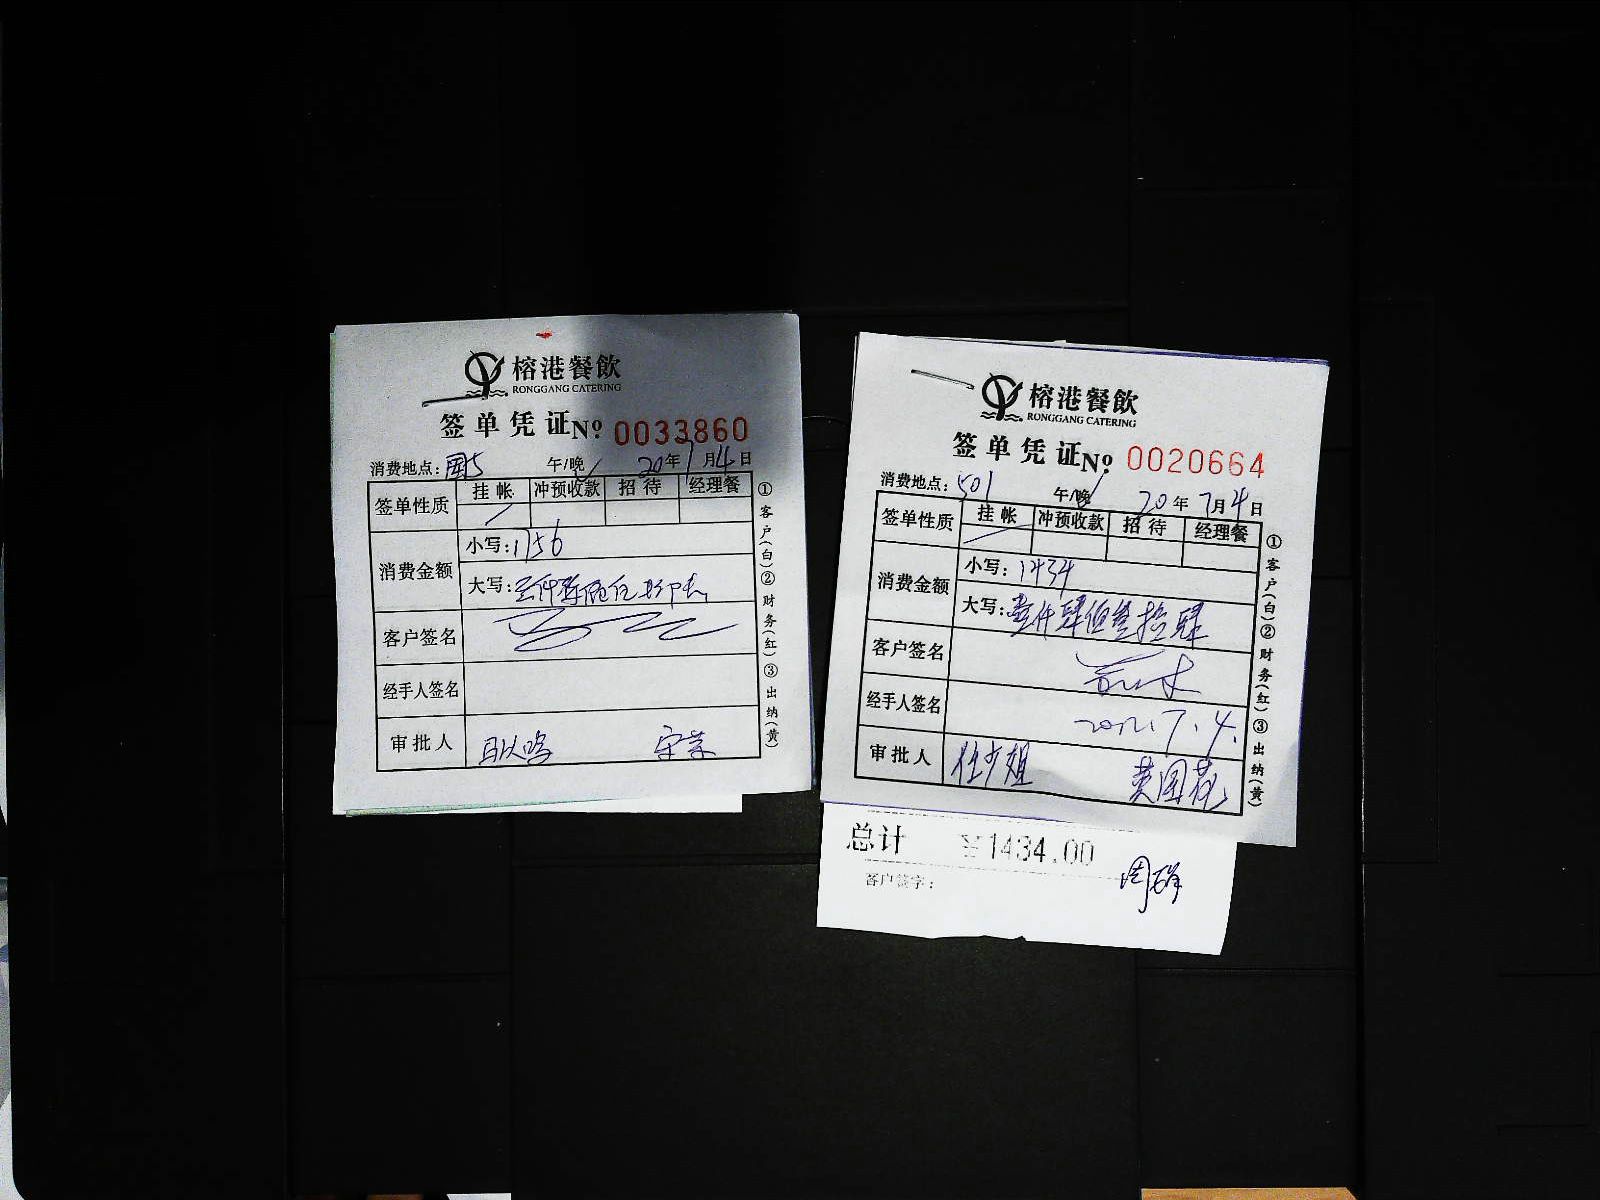 榕港餐飲
RONGGANG CATERING
签单凭证 Nº 0033860
消费地点: 午/晚 20年7月4日
签单性质 挂帐 冲预收款 招待 经理餐
消费金额
小写: 1756
大写:
客户签名
经手人签名
审批人
①客户(白)②财务(红)③出纳(黄)
榕港餐飲
RONGGANG CATERING
签单凭证 Nº 0020664
消费地点: 501 午/晚 20年7月4日
签单性质 挂帐 冲预收款 招待 经理餐
消费金额
小写: 1434
大写: 壹仟肆佰叁拾肆
客户签名
经手人签名 2012.7.4.
审批人 任少姐 黄图花
①客户(白)②财务(红)③出纳(黄)
总计 ¥1434.00
客户签字: 周群